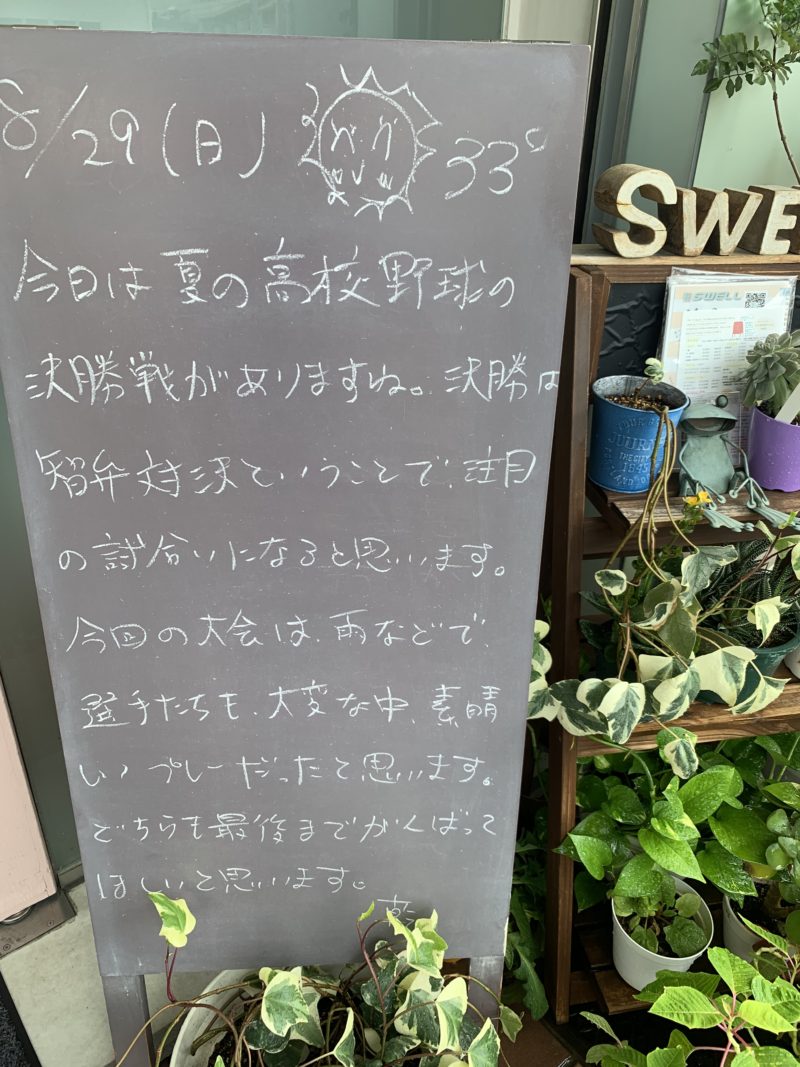 8/29(日) 33°
今日は夏の高校野球の
決勝戦がありますね。決勝は
智弁対決ということで、注目
の試合いになると思います。
今回の大会は、雨などで、
選手たちも、大変な中、素晴
しいプレーだったと思います。
どちらも最後までがんばって
ほしいと思います。
SWE
SWELL